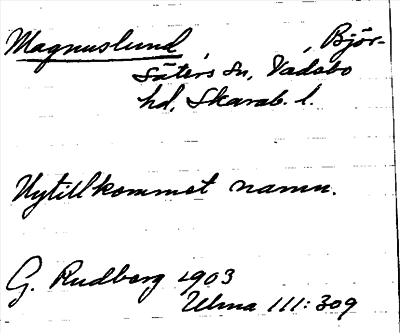 Magnuslund, Björ-
säters sn, Vadsbo
hd, Skarab. l.
Nytillkommet namn.
G. Rudberg 1903
Ulma 111:309